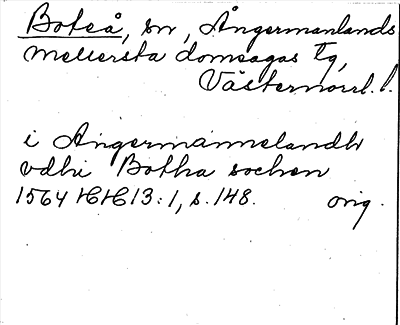 Boteå, sn, Ångermanlands
mellersta domsagas tg,
Västernorrl. l.
i Angermannelandh
vdhi Botha sochen
1564 HH 13:1, s. 148. orig.